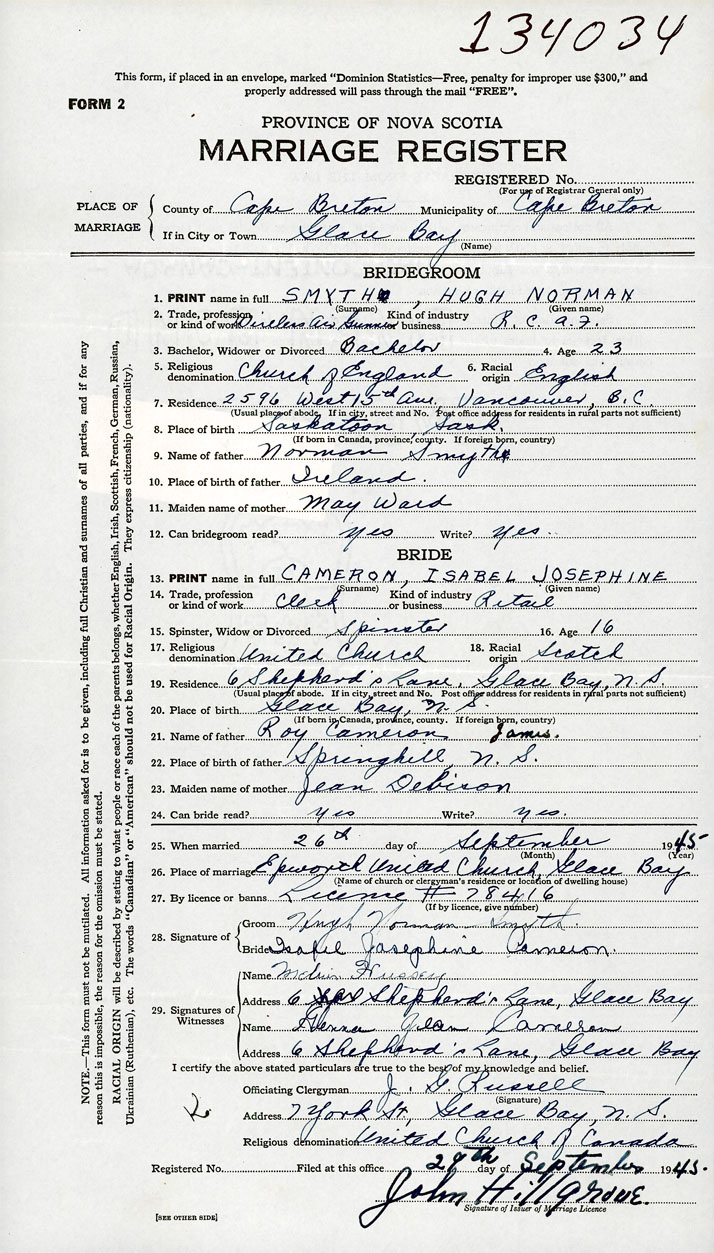 134034
This form, if placed in an envelope, marked "Dominion Statistics—Free, penalty for improper use $300," and
properly addressed will pass through the mail "FREE".
FORM 2
PROVINCE OF NOVA SCOTIA
MARRIAGE REGISTER
REGISTERED No.
(For use of Registrar General only)
PLACE OF MARRIAGE
County of Cape Breton Municipality of Cape Breton
If in City or Town Glace Bay
(Name)
BRIDEGROOM
1. PRINT name in full SMYTH, HUGH NORMAN
(Surname) (Given name)
2. Trade, profession or kind of work Wireless Air Gunner Kind of industry or business R.C.A.F.
3. Bachelor, Widower or Divorced Bachelor 4. Age 23
5. Religious denomination Church of England 6. Racial origin English
7. Residence 2596 West 15th Ave. Vancouver, B.C.
(Usual place of abode. If in city, street and No. Post office address for residents in rural parts not sufficient)
8. Place of birth Saskatoon, Sask.
(If born in Canada, province, county. If foreign born, country)
9. Name of father Norman Smyth
10. Place of birth of father Ireland.
11. Maiden name of mother May Ward
12. Can bridegroom read? yes Write? yes.
BRIDE
13. PRINT name in full CAMERON, ISABEL JOSEPHINE
(Surname) (Given name)
14. Trade, profession or kind of work Clerk Kind of industry or business Retail
15. Spinster, Widow or Divorced Spinster 16. Age 16
17. Religious denomination United Church 18. Racial origin Scotch
19. Residence 6 Shepherd's Lane, Glace Bay, N.S.
(Usual place of abode. If in city, street and No. Post office address for residents in rural parts not sufficient)
20. Place of birth Glace Bay, N.S.
(If born in Canada, province, county. If foreign born, country)
21. Name of father Roy Cameron James.
22. Place of birth of father Springhill, N.S.
23. Maiden name of mother Jean Debison
24. Can bride read? yes Write? yes.
25. When married 26th day of September 1945
(Month) (Year)
26. Place of marriage Epworth United Church, Glace Bay
(Name of church or clergyman's residence or location of dwelling house)
27. By licence or banns License # 78416
(If by licence, give number)
28. Signature of
Groom Hugh Norman Smyth.
Bride Isabel Josephine Cameron.
29. Signatures of Witnesses
Name Hussey
Address 6 Shepherd's Lane, Glace Bay
Name Jean Cameron
Address 6 Shepherd's Lane, Glace Bay
I certify the above stated particulars are true to the best of my knowledge and belief.
Officiating Clergyman J. G. Russell
(Signature)
Address 7 York St, Glace Bay, N.S.
Religious denomination United Church of Canada
Registered No. Filed at this office 29th day of September 1945.
John Hillgrove.
Signature of Issuer of Marriage Licence
[SEE OTHER SIDE]
NOTE.—This form must not be mutilated. All information asked for is to be given, including full Christian and surnames of all parties, and if for any
reason this is impossible, the reason for the omission must be stated.
RACIAL ORIGIN will be described by stating to what people or race each of the parents belongs, whether English, Irish, Scottish, French, German, Russian,
Ukrainian (Ruthenian), etc. The words "Canadian" or "American" should not be used for Racial Origin. They express citizenship (nationality).